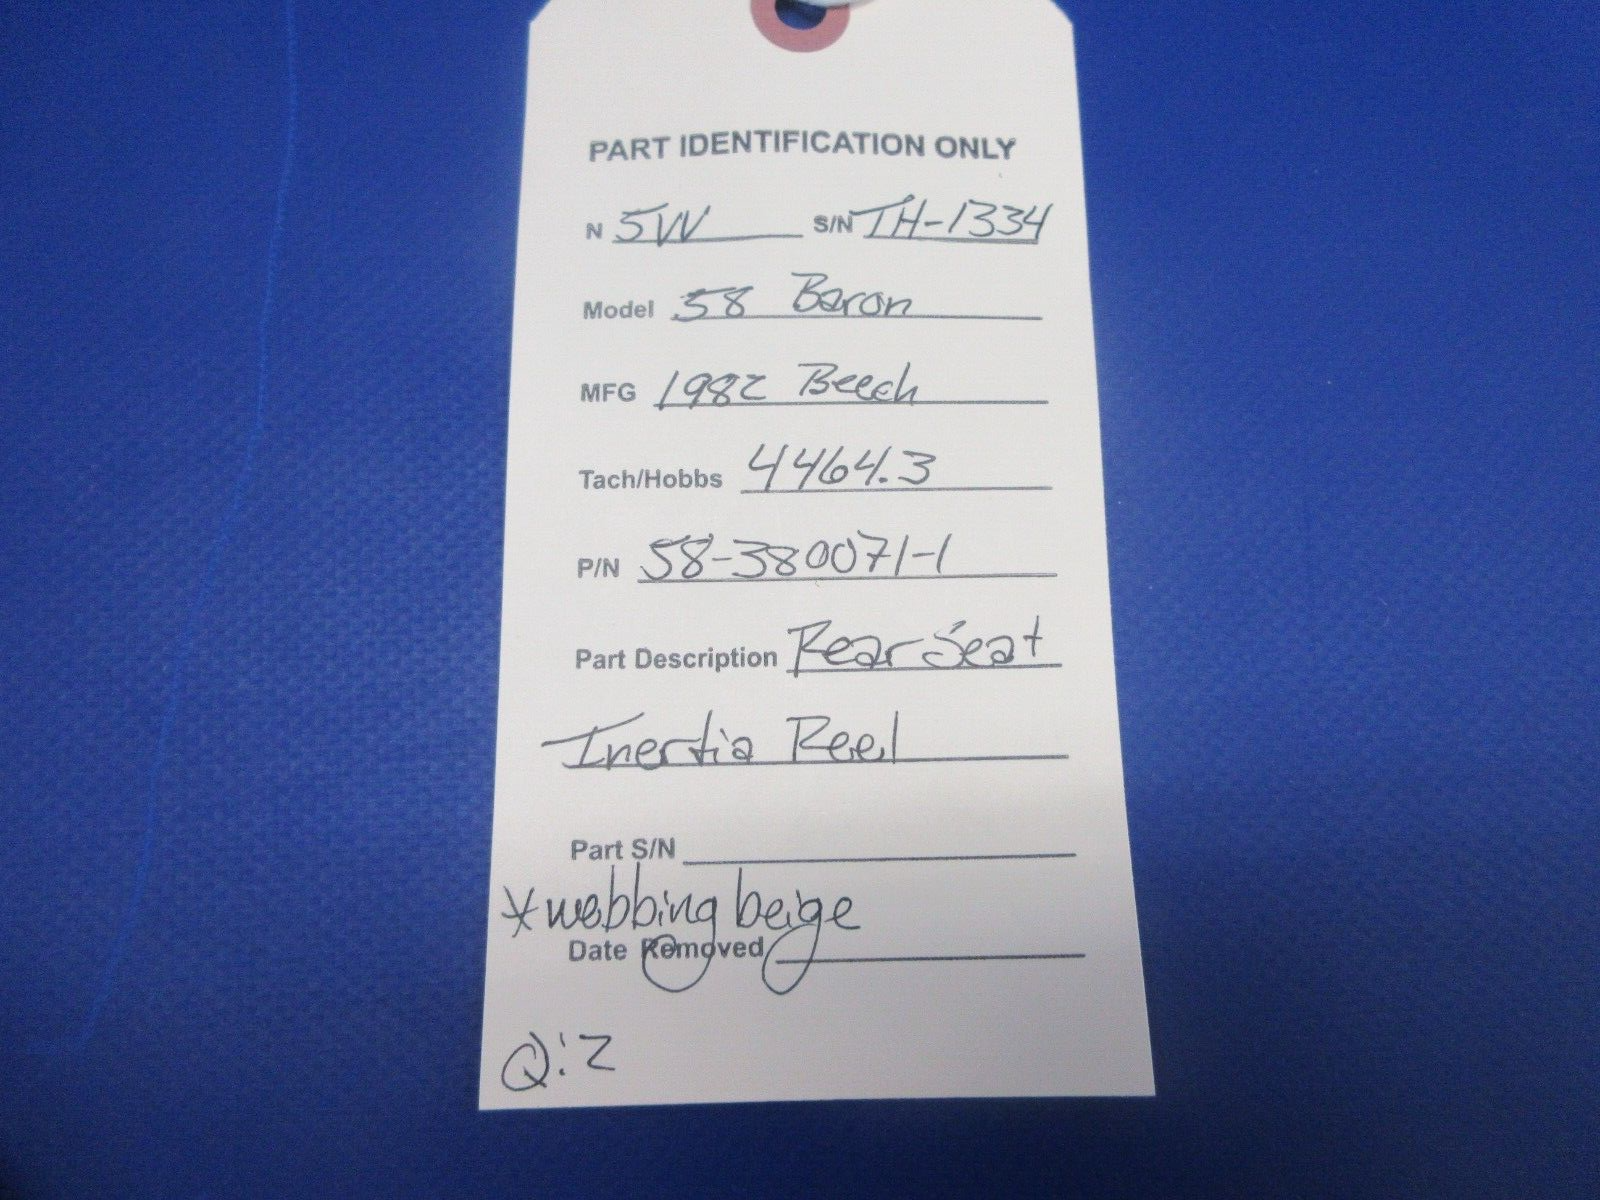 PART IDENTIFICATION ONLY
N 5VV S/N TH-1334
Model 58 Baron
MFG 1982 Beech
Tach/Hobbs 4464.3
P/N 58-380071-1
Part Description Rear Seat
Inertia Reel
Part S/N
*webbing beige
Date Removed
Q:2